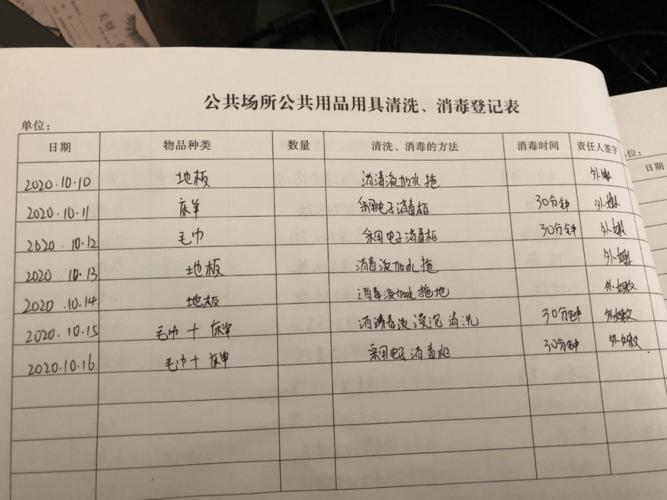 公共场所公共用品用具清洗、消毒登记表
单位:
日期 物品种类 数量 清洗、消毒的方法 消毒时间 责任人签字
2020.10.10 地板 消毒液加水拖
2020.10.11 床单 采用电子消毒柜 30分钟
2020.10.12 毛巾 采用电子消毒柜 30分钟
2020.10.13 地板 消毒液加水拖
2020.10.14 地板 消毒液加水拖地
2020.10.15 毛巾+床单 消毒液浸泡清洗 30分钟
2020.10.16 毛巾+床单 采用电子消毒柜 30分钟
位:
日期